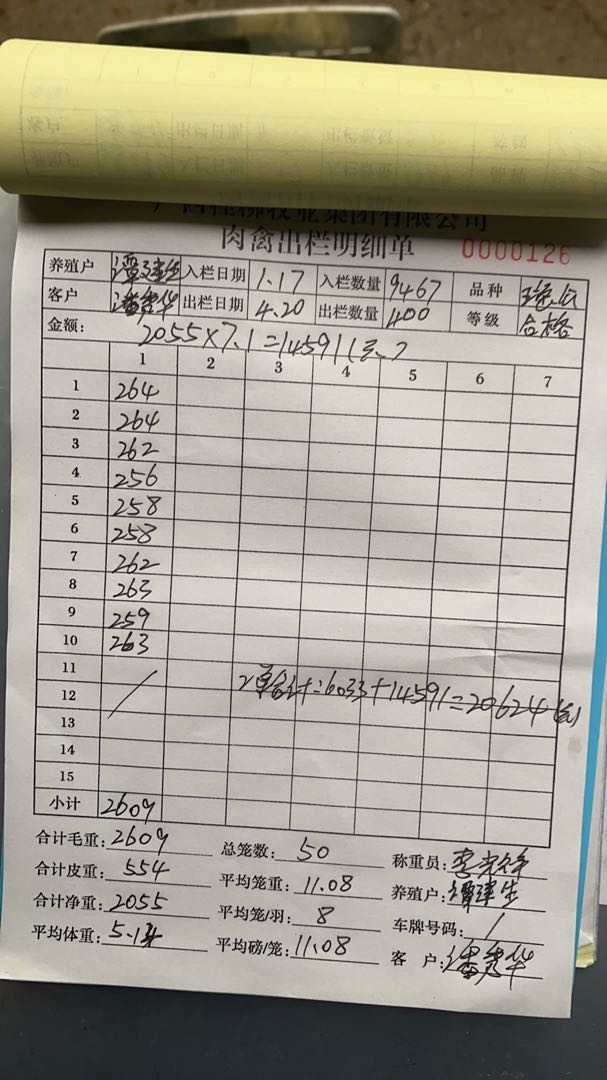 牧业集团有限公司
肉禽出栏明细单 0000126
养殖户 谭建生 入栏日期 1.17 入栏数量 9467 品种
客户 出栏日期 4.20 出栏数量 400 等级 合格
金额: 2055×7.1=14591(元)
1 2 3 4 5 6 7
1 264
2 264
3 262
4 256
5 258
6 258
7 262
8 263
9 259
10 263
11
12 2单合计=6033+14591=20624
13
14
15
小计 2609
合计毛重: 2609 总笼数: 50 称重员:
合计皮重: 554 平均笼重: 11.08 养殖户: 谭建生
合计净重: 2055 平均笼/羽: 8 车牌号码: /
平均体重: 5.14 平均磅/笼: 11.08 客户: